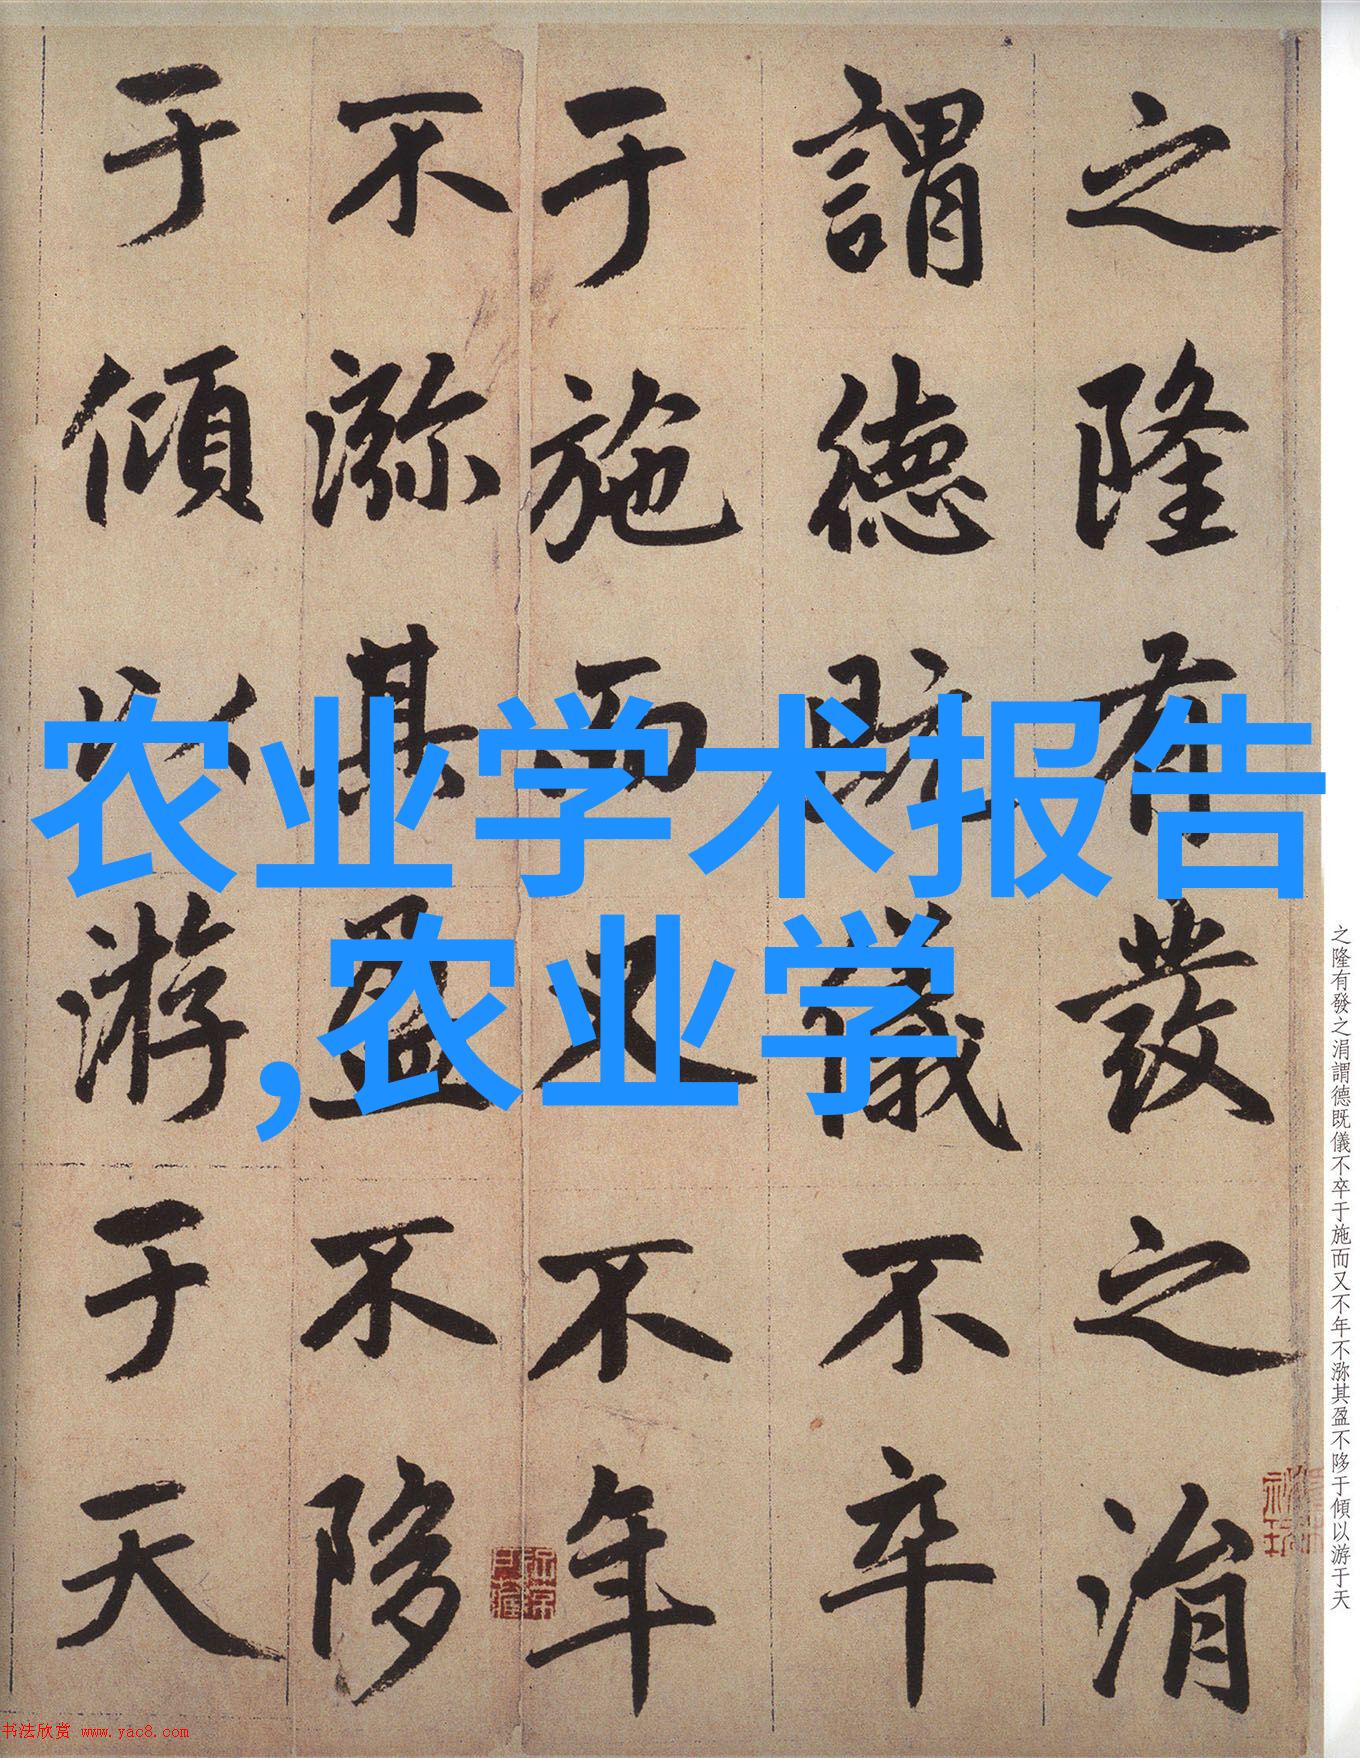 之隆有發之涓
謂德既儀不卒
于施而又不年
不㳽其盈不陊
于傾以游于天
农业学术报告
,农业学
之隆有發之涓謂德既儀不卒于施而又不年不㳽其盈不陊于傾以游于天
书法欣赏 www.yac8.com